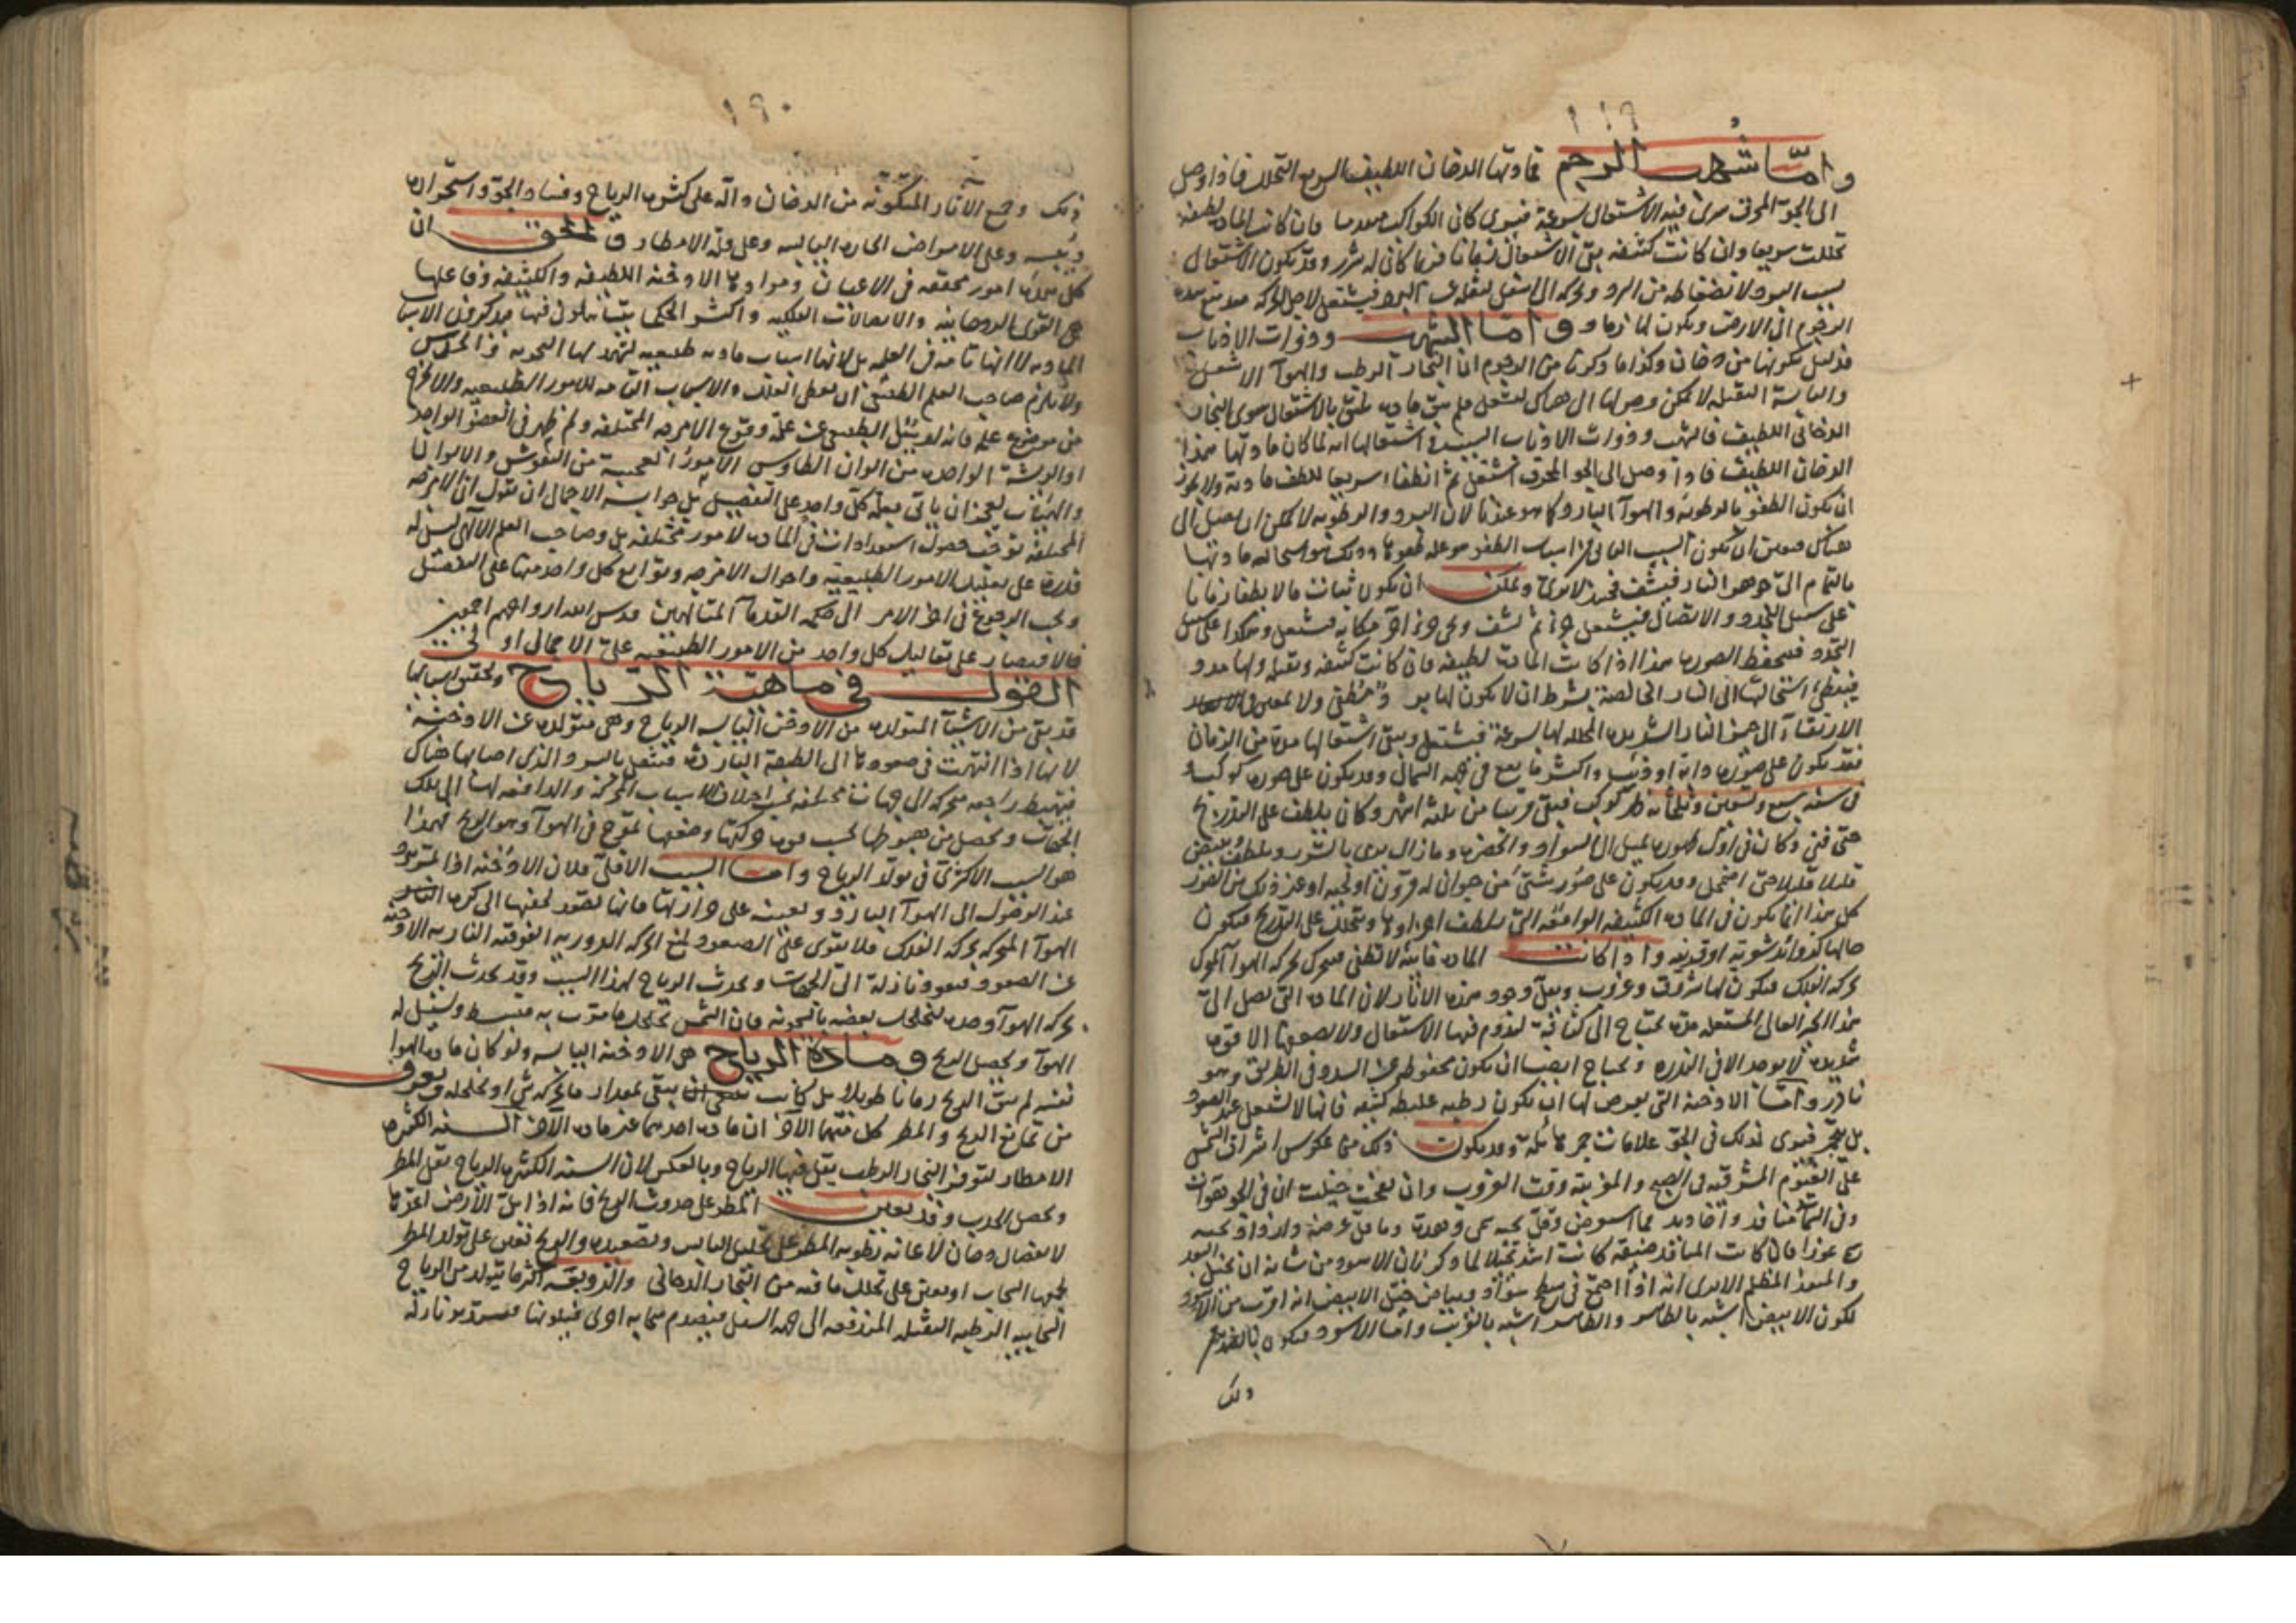 ١١٩
واما شهب الرجم فمادتها الدخان اللطيف السريع التحلل فاذا وصل
الى الجو المحرق سرى فيه الاشتعال بسرعة فيرى كان الكواكب فان كانت المادة لطيفة
تحللت سريعا وان كانت كثيفة بقى الاشتعال زمانا فربما كانى له شرر وقد يكون الاشتعال
بسبب البرد لانضغاطه من البرد الى اسفل لثقله عن البرد فيشتعل لاجل الحركة
الرجوم الى الارض ويكون لها واما الشهب وذوات الاذناب
فدليل تكونها من دخان وكذا ما ذكرنا من الرجوم ان البخار الرطب والهوآ لا
واليابسة الثقيلة لا يمكن وصولها الى هناك لتشتعل فلم يبق مادة تليق بالاشتعال سوى البخار
الدخانى اللطيف فالشهب وذوات الاذناب السبب فى اشتعالها انه لما كان مادتها هذا
الدخان اللطيف فاذا وصل الى الجو المحرق اشتعل ثم انطفا سريعا للطف مادته ولا يجوز
ان يكون الطفو بالرطوبة والهوآ البارد كما هو عندنا لان البرد والرطوبة لا يمكن ان يصل الى
هناك فتعين ان يكون السبب الثانى من اسباب الطفو هو وذلك هو استحالة مادتها
بالتمام الى جوهر النار فيشف فحينئذ لا يرى ويمكن ان يكون ثبات ما لا يطفا زمانا
على سبيل التجدد والاتصال فيشتعل جزء ثم يشف ويجى جزء آخر مكانه فيشتعل وهكذا على سبيل
التجدد فيحفظ الصورة هذا اذا كانت المادة لطيفة فان كانت كثيفة وثقيلة
فيبطى استحالتها الى النار الخالصة بشرط ان لا يكون لها برد مطفى ولا
الارتقاء الى حيز النار الشديدة المحللة لها بسرعة فتشتعل ويبقى اشتعالها مدة من الزمان
فقد يكون على صورة دابة او ذنب واكثر ما يقع فى جهة الشمال وقد يكون على صورة كوكب
فى سنة سبع وتسعين وثلثمائة ظهر كوكب فبقى قريبا من ثلثة اشهر وكان يلطف على التدريج
حتى فنى وكان فى اول ظهوره يميل الى السواد والخضرة وما زال يرمى بالشرر ويلطف
قليلا قليلا حتى اضمحل وقد يكون على صور شتى من حيوان له قرون او لحية او غير ذلك من الصور
كل هذا انما يكون فى المادة الكثيفة الواقفة التى يلطف اجزاوها ويتحلل على التدريج فيكون
حالها واذا كانت المادة فانية لا تطفى فيتحرك بحركة الهوآ المحرك
بحركة الفلك فيكون لها شروق وغروب ويقل وجود هذه الاثار لان المادة التى تصل الى
هذا الحيز العالى المشتعلة مدة تحتاج الى كثافة يدوم فيها الاشتعال ولا يصعدها الا قوة
شديدة لا يوجد الا فى الندرة ويحتاج ايضا ان يكون محفوظة عن التبدد فى الطريق وهو
نادر واما الادخنة التى يعرض لها ان يكون رطبة غليظة كثيفة فانها لا تشتعل عند الصعود
بل تحمر فيرى لذلك فى الجو علامات حمر هائلة وقد يكون ذلك من عكوس اشراق الشمس
على الغيوم المشرقية فى الصبح والمغربية وقت الغروب وان تفحمت خيلت ان فى الجو هوات
وفى السما منافذ واخاديد مما اسود
فان كانت المنافذ ضيقة كانت اشد تخيلا لما ذكر فان الاسود من شانه ان يخيل البعد
والمنفذ المظلم الا يرى انه اذا اجتمع فى سطح سواد وبياض خيل الابيض انه اقرب من الاسود
لكون الابيض اشبه بالظاهر والظاهر اشبه بالقريب واما الاسود فيكون بالضد من
ذلك
١٩٠
ذلك وجميع الآثار المتكونة من الدخان دالة على كثرة الرياح وفساد الجو واستحراره
ويبسه وعلى الامراض الحارة اليابسة وعلى قلة الامطار والحق ان
كل هذه امور محققة فى الاعيان وموادها الادخنة اللطيفة والكثيفة وفاعلها
هى القوى الروحانية والاتصالات الفلكية واكثر الحكما يتساهلون فيها فيذكرون الاسباب
المادية لا انها تامة فى العلية بل لانها اسباب مادية طبيعية تشهد لها التجربة والحدس
ولا يلزم صاحب العلم الطبيعى ان يعطى العلل والاسباب التامة للامور الطبيعية والاخرج
من موضوع علمه فانه لو سئل الطبيعى عن علة وقوع الامزجة المختلفة ولم ظهر فى العضو الواحد
او الريشة الواحدة من الوان الطاوس الامور العجيبة من النقوش والالوان
والهيئات لعجز ان ياتى بعلة كل واحد على التفصيل بل جوابه الاجمالى ان يقول ان الامزجة
المختلفة توجب حصول استعدادات فى المادة لامور مختلفة بل وصاحب العلم الالهى ليس له
قدرة على تعليل الامور الطبيعية واحوال الامزجة وتوابع كل واحد منها على التفصيل
ويجب الرجوع فى اخر الامر الى حكمة القدمآ المتالهين قدس الله ارواحهم اجمعين
فالاقتصار على تعاليل كل واحد من الامور الطبيعية على الاجمال اولى
القول فى ماهية الرياح وتحقيق اسبابها
قد بقى من الاشيآ المتولدة من الادخنة اليابسة الرياح وهى متولدة عن الادخنة
لانها اذا انتهت فى صعودها الى الطبقة الباردة فيثقل بالبرد الذى اصابها هناك
فيهبط راجعة متحركة الى جهات مختلفة بحسب اختلاف الاسباب المحركة والدافعة لها الى تلك
الجهات ويحصل من هبوطها بحسب قوة حركتها وضعفها تموج فى الهوآ وهو الريح فهذا
هو السبب الاكثرى فى تولد الرياح واما السبب الاقلى فلان الادخنة اذا لم تبرد
عند الوصول الى الهوآ البارد وبقيت على حرارتها فانها تصعد لخفتها الى كرة النار
الهوآ المتحركة بحركة الفلك فلا يقوى على الصعود لمنع الحركة الدورية الفوقية النارية الادخنة
عن الصعود فيعود نازلة الى الجهات ويحدث الرياح لهذا السبب وقد يحدث الريح
بحركة الهوآ وحده لتخلخل بعضه بالسخونة فان الشمس تخلخل ما مرت به فينبسط ويسيل له
الهوآ ويحصل الريح ومادة الرياح هى الادخنة اليابسة ولو كان مادة الهوا
نفسه لم يبق الريح زمانا طويلا بل كانت تبقى بمقدار ما يحركه شى او يخلخله ويعرف
من تمانع الريح والمطر كل منهما الآخر ان مادة احدهما غير مادة الآخر السنة الكثيرة
الامطار لتوفر البخار الرطب يقل فيها الرياح وبالعكس لان السنة الكثيرة الرياح يقل المطر
ويحصل الجدب وقد يعين المطر على حدوث الريح فانه اذا بل الارض اعدها
لانفصال دخان لاعانة رطوبة المطر على تحليل اليابس وتصعيده والريح تعين على تولد المطر
بجمعها السحاب او تعين على تحلل ما فيه من البخار الدخانى والزوبعة اكثر ما يتولد من الرياح
السحابية الرطبة الثقيلة المندفعة الى جهة السفل فيصدم سحابة اخرى نازلة